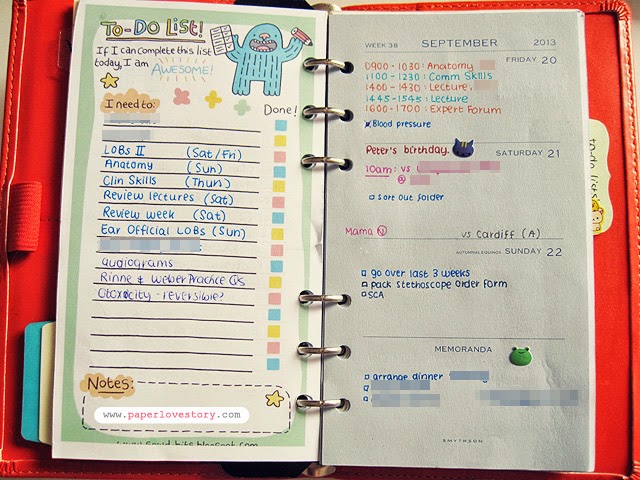 TO-DO LIST!
If I can complete this list
today, I am
AWESOME!
I need to:
Done!
LOBs II (Sat/Fri)
Anatomy (Sun)
Clin Skills (Thurs)
Review lectures (Sat)
Review week (Sat)
Ear Official LOBs (Sun)
audiograms
Rinne & Weber Practice Qs
Otoxicity - reversible?
Notes:
www.paperlovestory.com
WEEK 38 SEPTEMBER 2013
FRIDAY 20
0900 - 1030: Anatomy
1100 - 1230: Comm Skills
1400 - 1430: Lecture,
1445 - 1545: Lecture
1600 - 1700: Expert Forum
Blood pressure
Peter's birthday.
SATURDAY 21
10am: vs
@
sort out folder
Mama
vs Cardiff (A)
AUTUMNAL EQUINOX SUNDAY 22
go over last 3 weeks
pack stethoscope order form
SCA
MEMORANDA
arrange dinner
SMYTHSON
to-do lists